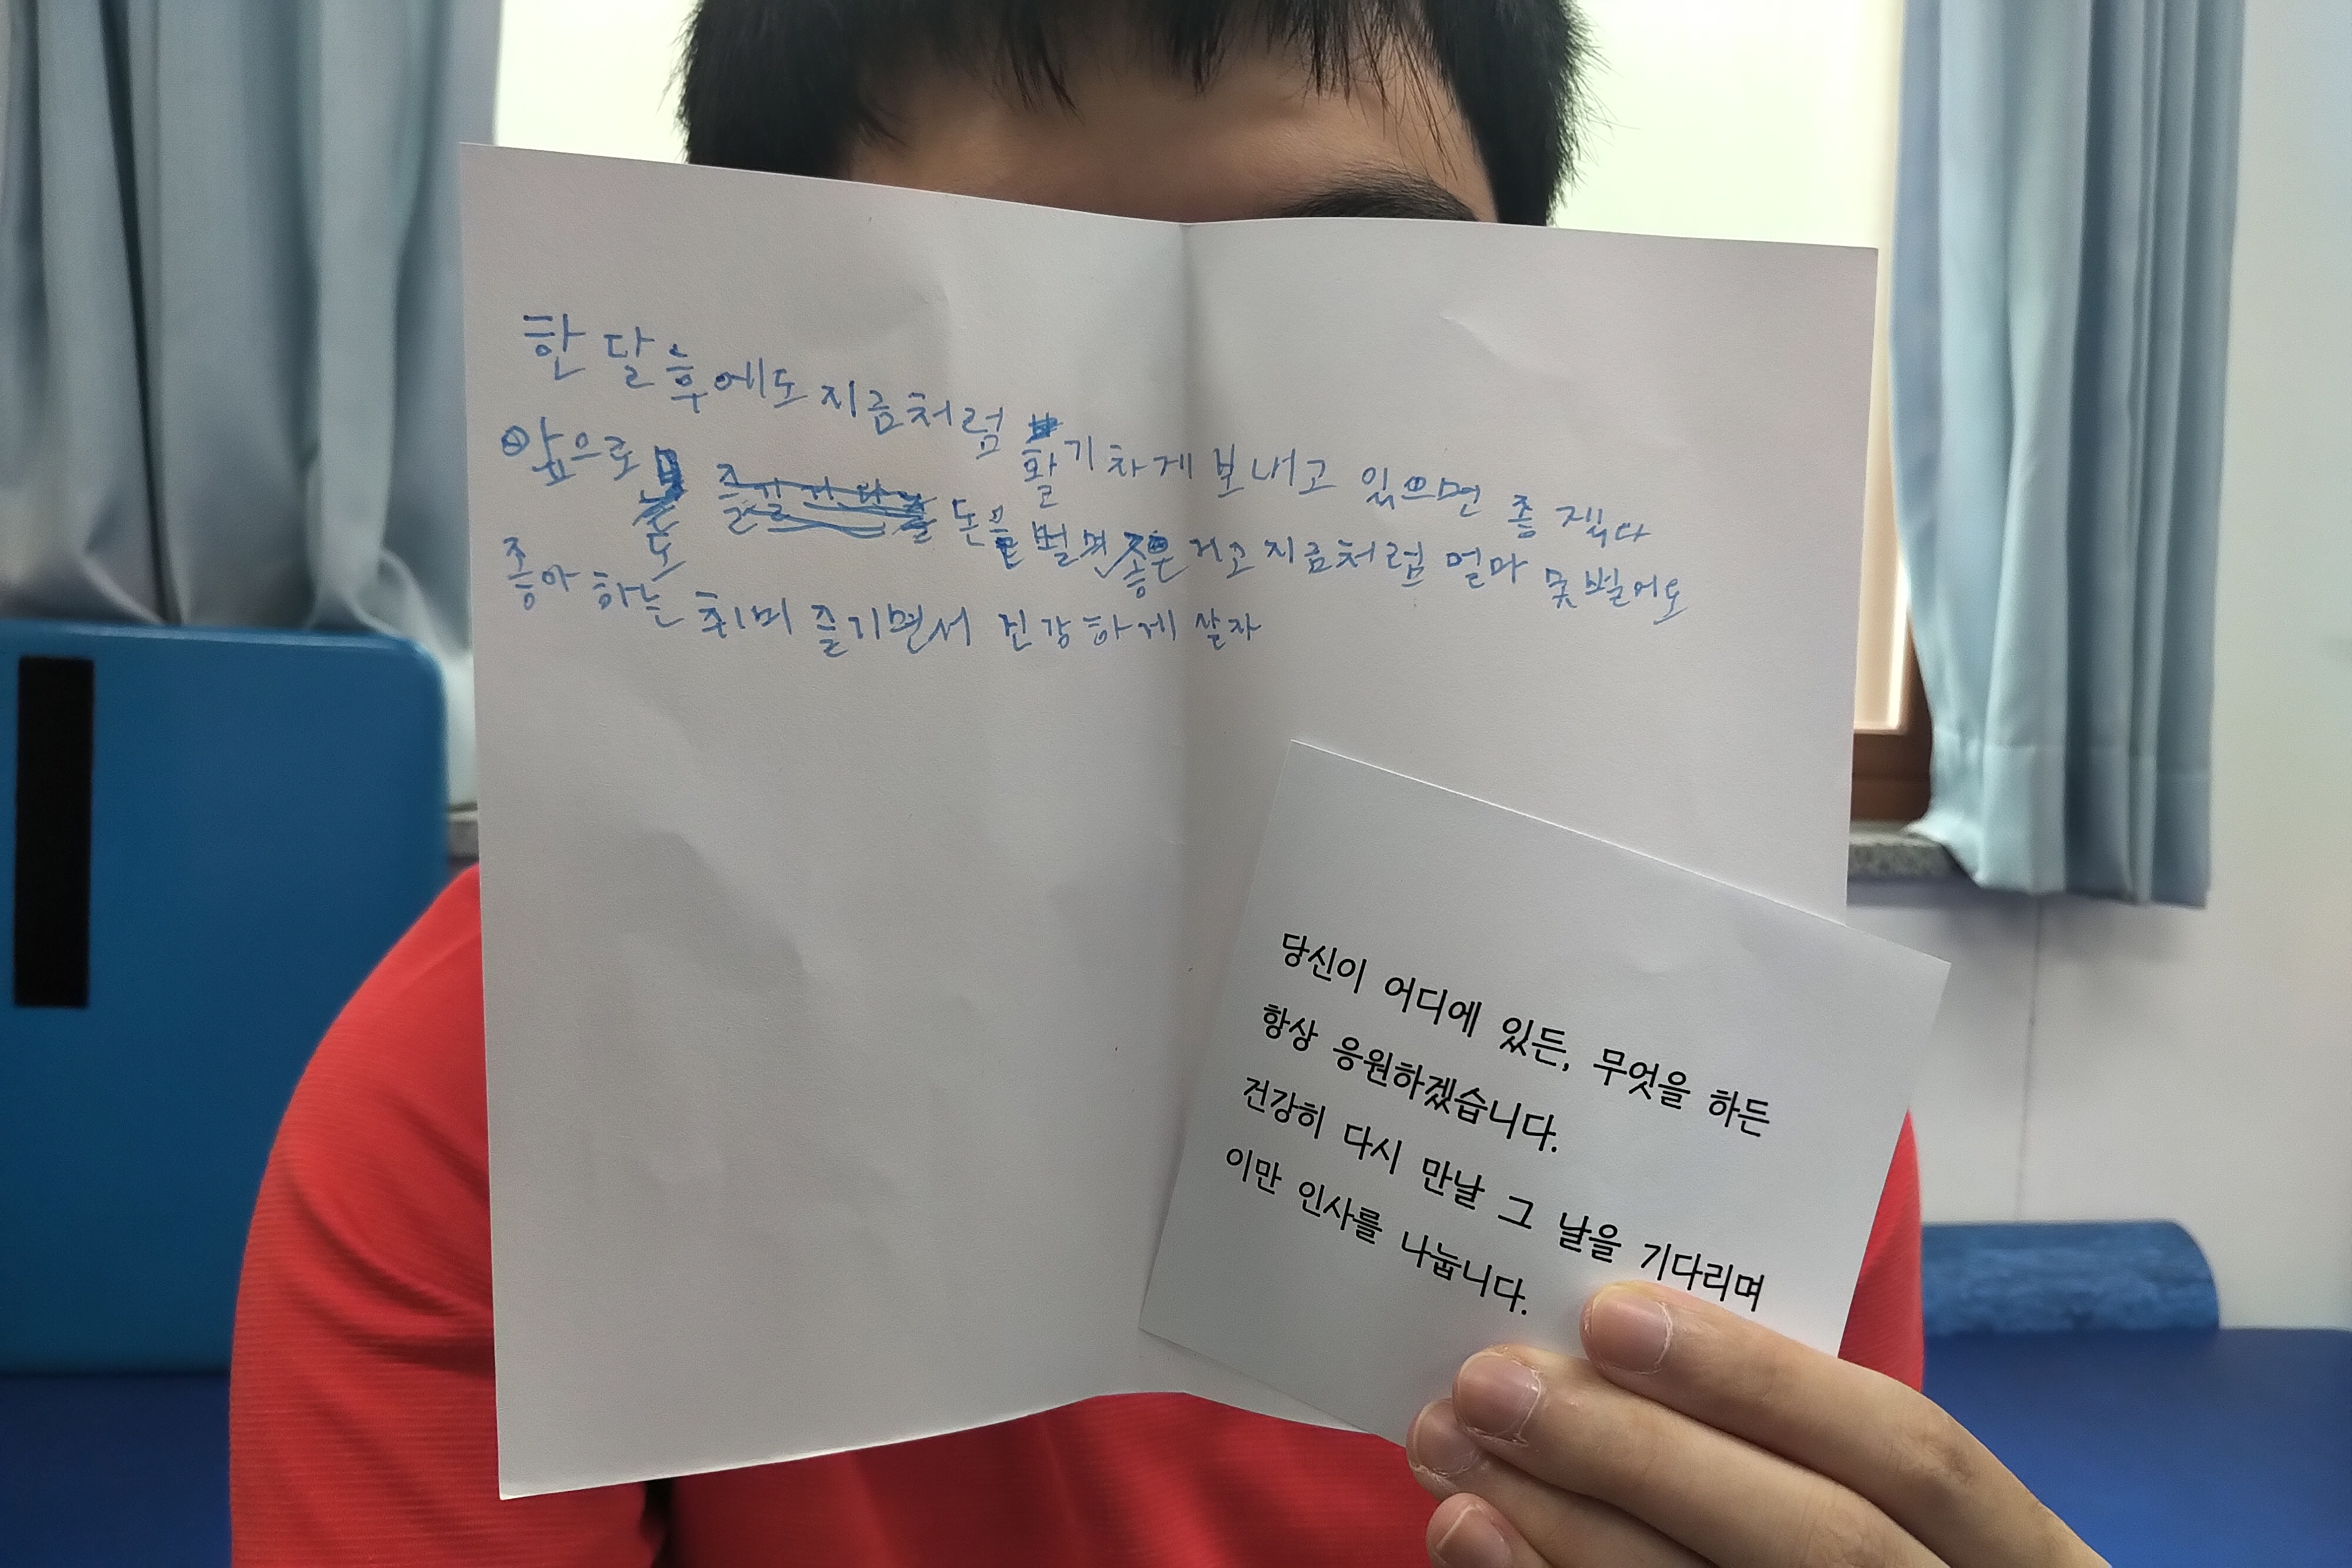 한 달 후에도 지금처럼 활기차게 보내고 있으면 좋겠다
앞으로도 돈을 벌면 좋은 거고 지금처럼 얼마 못 벌어도
좋아하는 취미 즐기면서 건강하게 살자
당신이 어디에 있든, 무엇을 하든
항상 응원하겠습니다.
건강히 다시 만날 그 날을 기다리며
이만 인사를 나눕니다.